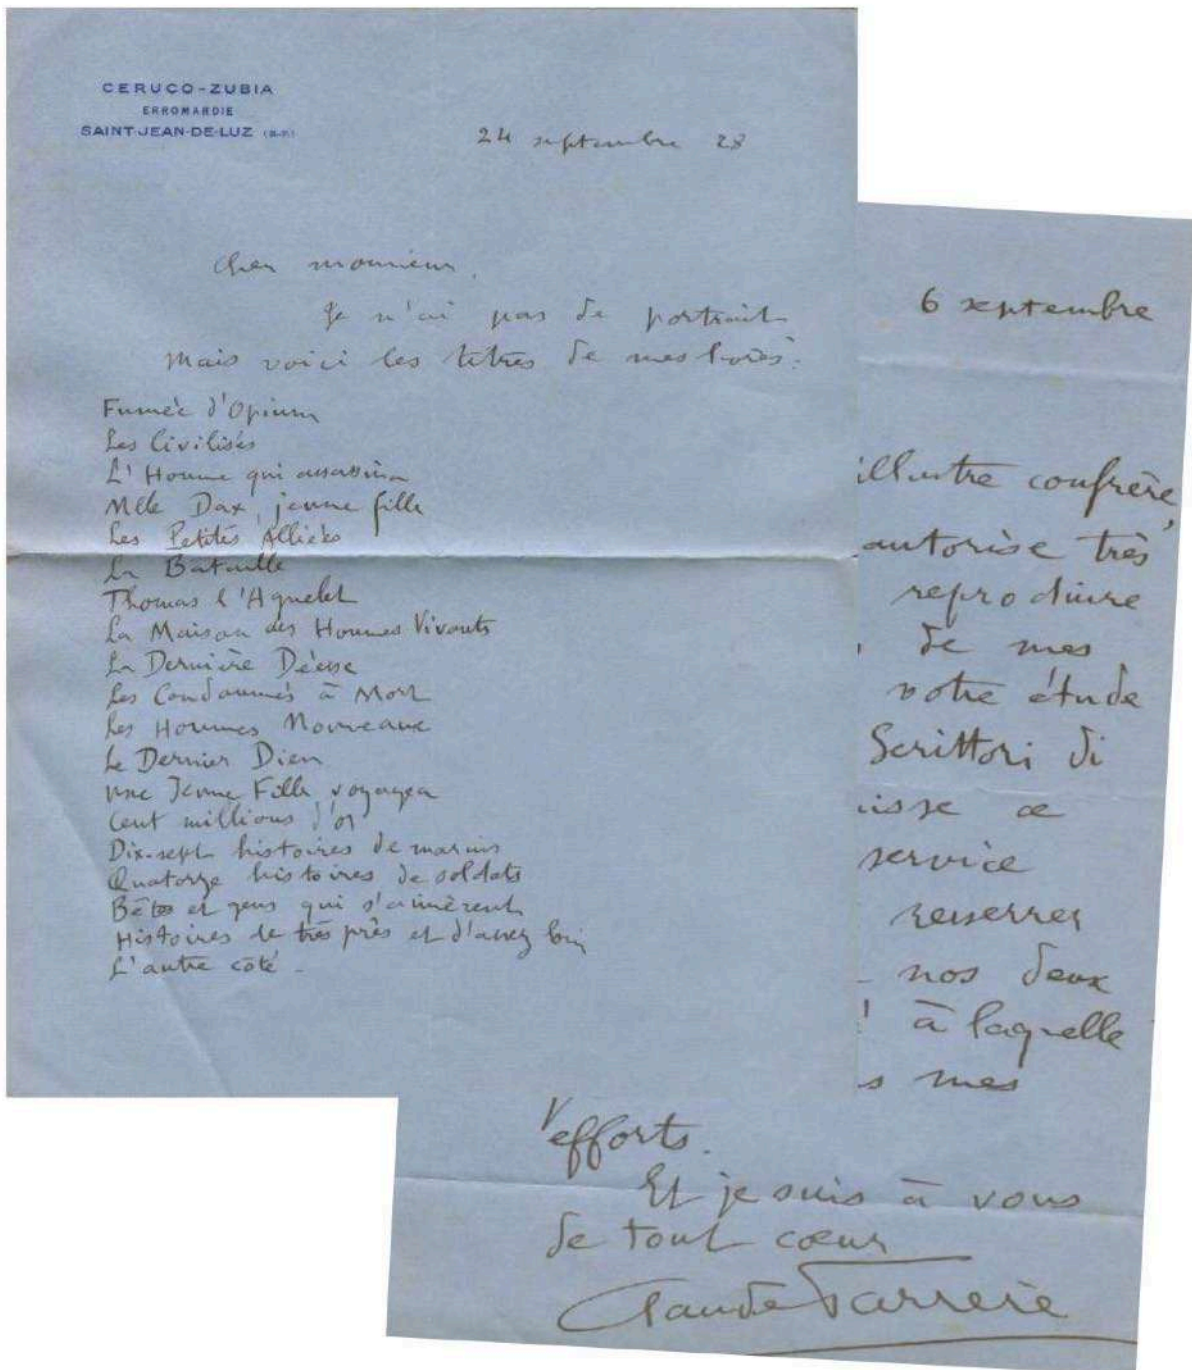 CERUCO-ZUBIA
ERROMARDIE
SAINT-JEAN-DE-LUZ (B-P)
24 septembre 28
Cher monsieur,
Je n'ai pas de portrait
mais voici les titres de mes livres :
Fumée d'Opium
Les Civilisés
L'Homme qui assassina
Mlle Dax, jeune fille
Les Petites Alliées
La Bataille
Thomas l'Agnelet
La Maison des Hommes Vivants
La Dernière Déesse
Les Condamnés à Mort
Les Hommes Nouveaux
Le Dernier Dieu
Une Jeune Fille voyagea
Cent millions d'or
Dix-sept histoires de marins
Quatorze histoires de soldats
Bêtes et gens qui s'aimèrent
Histoires de très près et d'assez loin
L'autre côté -
6 septembre
illustre confrère,
autorise très
reproduire
de mes
votre étude
Scrittori di
isse ce
service
resserrer
nos deux
à laquelle
s mes
efforts.
Et je suis à vous
de tout cœur
Claude Farrère